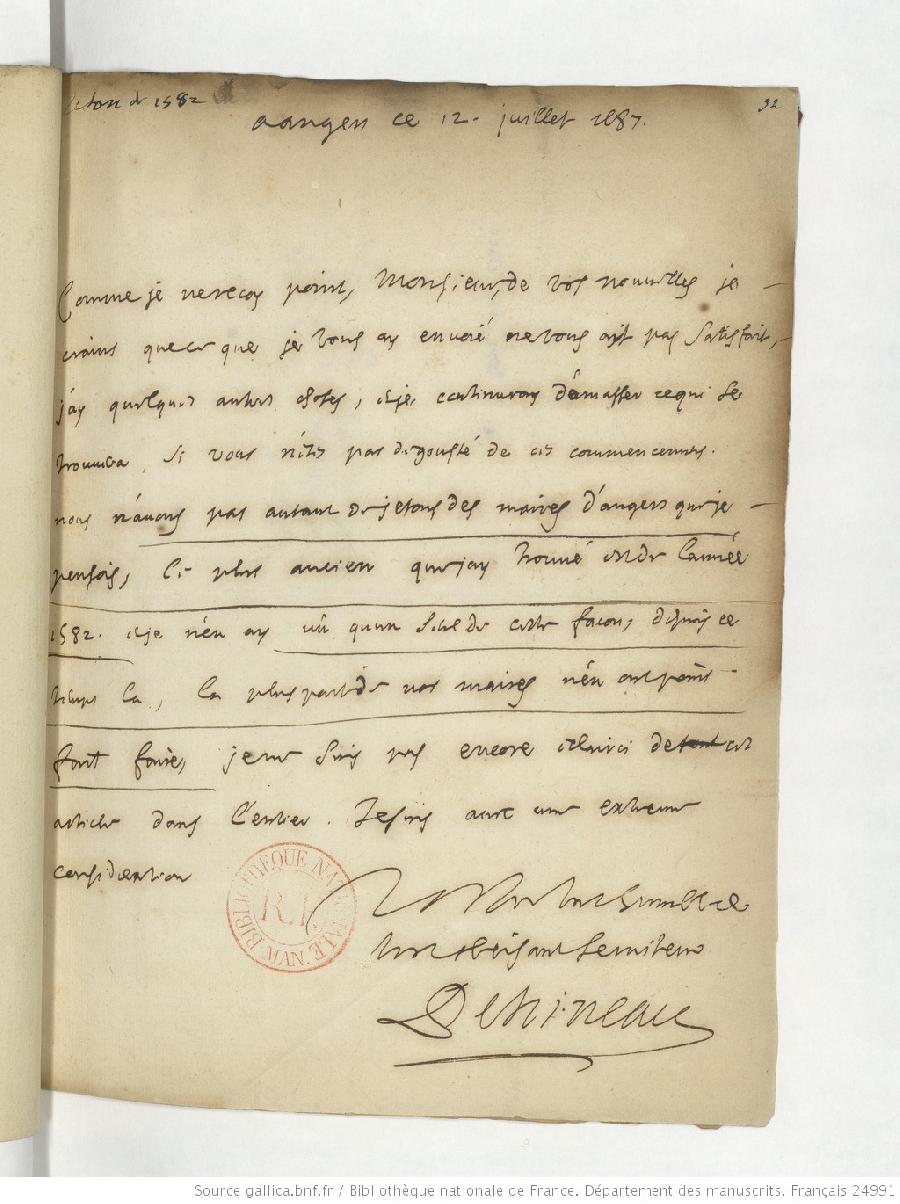 jeton de 1582
32
a angers ce 12. juillet 1687.
Comme je ne recoy point, Monsieur, de vos nouvelles je
crains que ce que je vous ay envoié ne vous ait pas satisfait,
j'ay quelques autres choses, et je continuray d'amasser ce qui se
trouvera. Si vous n'étes pas dégousté de ces commencemens.
nous n'avons pas autant de jetons des maires d'angers que je
pensois, le plus ancien que j'ay trouvé est de l'année
1582. et je n'en ay vû qu'un seul de cette facon, depuis ce
temps la, la pluspart de nos maires n'en ont point
fait faire, je ne suis pas encore éclairci de cet
article dans l'entier. Je suis avec une extreme
consideration
Votre tres humble et
tres obeissant serviteur
BIBLIOTHEQUE NATIONALE MAN
R.F.
Source gallica.bnf.fr / Bibliothèque nationale de France. Département des manuscrits. Français 24991